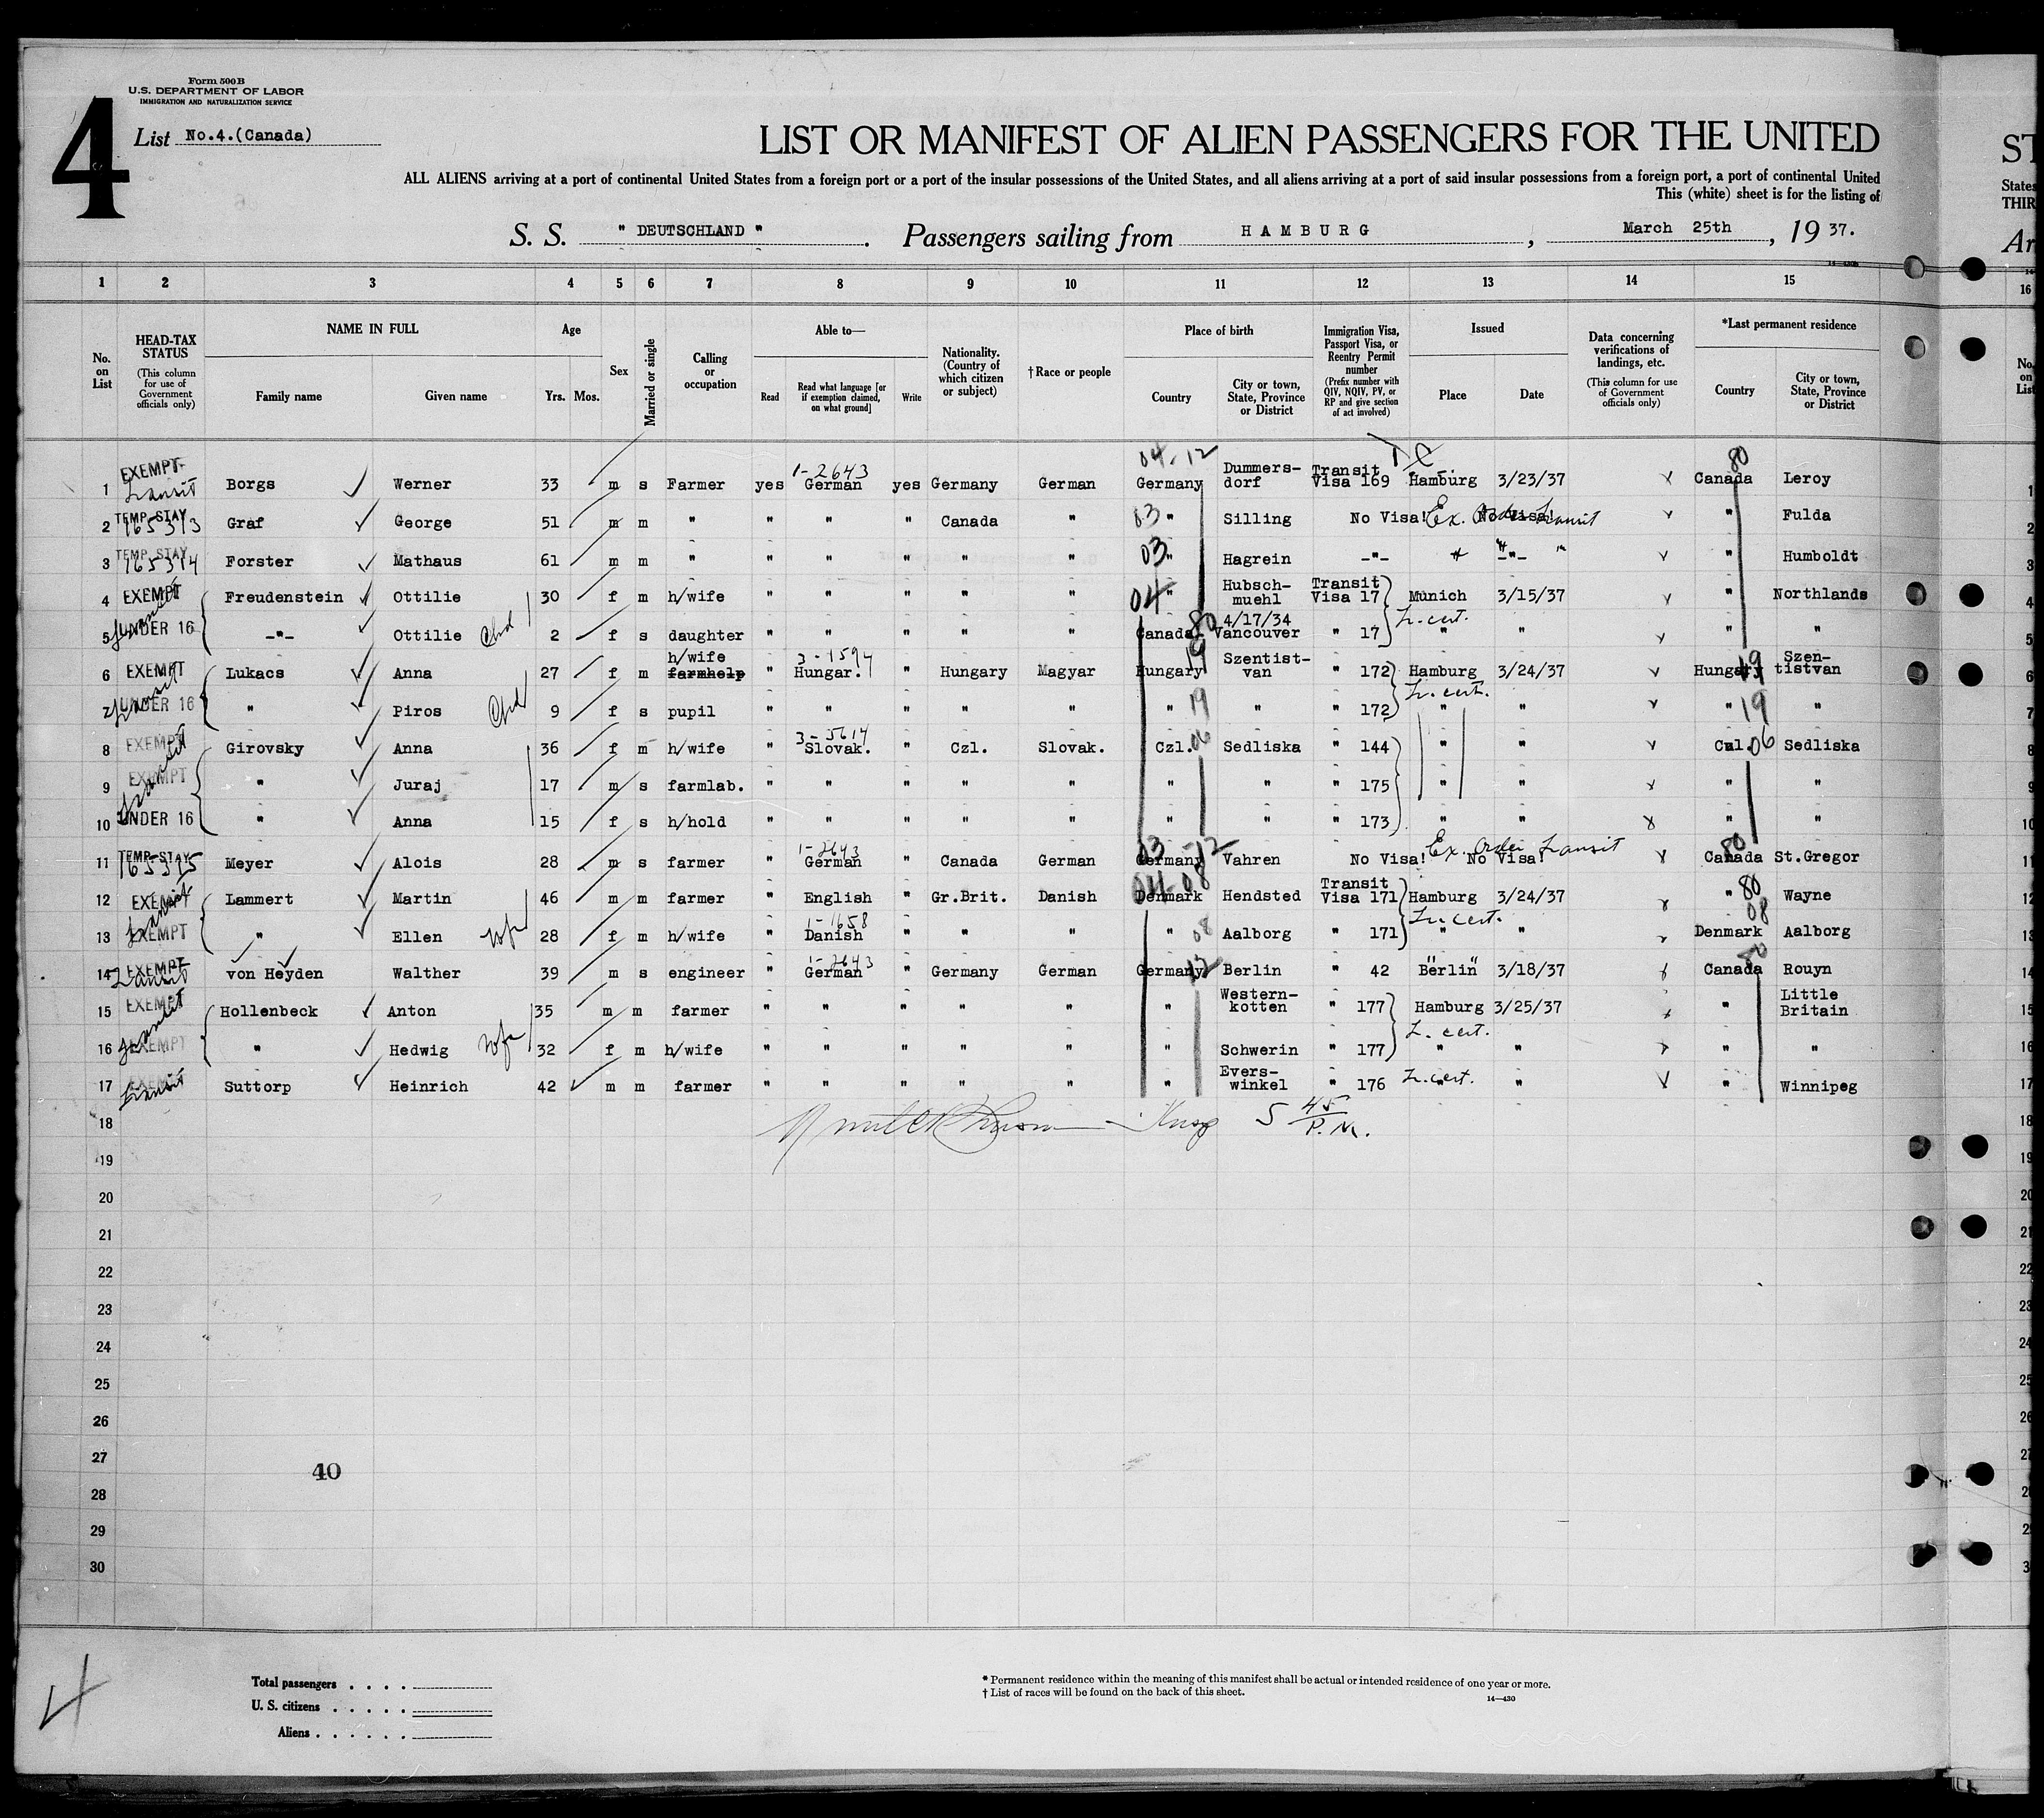 Form 500B
U.S. DEPARTMENT OF LABOR
IMMIGRATION AND NATURALIZATION SERVICE
4
List No.4.(Canada)
LIST OR MANIFEST OF ALIEN PASSENGERS FOR THE UNITED
ALL ALIENS arriving at a port of continental United States from a foreign port or a port of the insular possessions of the United States, and all aliens arriving at a port of said insular possessions from a foreign port, a port of continental United
This (white) sheet is for the listing of
S. S. " DEUTSCHLAND " . Passengers sailing from H A M B U R G , March 25th , 19 37.
1 2 3 4 5 6 7 8 9 10 11 12 13 14 15
No. on List
HEAD-TAX STATUS (This column for use of Government officials only)
NAME IN FULL
Family name Given name
Age
Yrs. Mos.
Sex
Married or single
Calling or occupation
Able to—
Read Read what language [or if exemption claimed, on what ground] Write
Nationality. (Country of which citizen or subject)
†Race or people
Place of birth
Country City or town, State, Province or District
Immigration Visa, Passport Visa, or Reentry Permit number (Prefix number with QIV, NQIV, PV, or RP and give section of act involved)
Issued
Place Date
Data concerning verifications of landings, etc. (This column for use of Government officials only)
*Last permanent residence
Country City or town, State, Province or District
04-12
1-2643 80
1 EXEMPT Transit Borgs Werner 33 m s Farmer yes German yes Germany German Germany Dummers-dorf Transit Visa 169 Hamburg 3/23/37 Canada Leroy
2 TEMP STAY 165313 Graf George 51 m m " " " " Canada " 03 " Silling No Visa! Ex. Order Transit No Visa! " Fulda
3 TEMP. STAY 165314 Forster Mathaus 61 m m " " " " " " 03 " Hagrein -"- " -"- " Humboldt
4 EXEMPT Transit Freudenstein Ottilie 30 f m h/wife " " " " " 04 " Hubsch-muehl Transit Visa 17 Munich 3/15/37 " Northlands
Tr. cert.
5 UNDER 16 -"- Ottilie Chd 2 f s daughter " " " " " Canada 80 4/17/34 Vancouver " 17 " " " "
6 EXEMPT Transit Lukacs Anna 27 f m h/wife farmhelp " 3-1594 Hungar. " Hungary Magyar Hungary 19 Szentist-van " 172 Hamburg 3/24/37 Hungary 19 Szen-tistvan
Tr. cert.
7 UNDER 16 " Piros Chd 9 f s pupil " " " " " " 19 " 172 " " " 19 "
8 EXEMPT Girovsky Anna 36 f m h/wife " 3-5614 Slovak. " Czl. Slovak. Czl. 06 Sedliska " 144 " " Czl. 06 Sedliska
9 EXEMPT Transit " Juraj 17 m s farmlab. " " " " " " " " 175 " " " "
10 UNDER 16 " Anna 15 f s h/hold " " " " " " " " 173 " " " "
11 TEMP STAY 165315 Meyer Alois 28 m s farmer " 1-2643 German " Canada German Germany 03-12 Vahren No Visa! Ex. Order Transit No Visa! Canada 80 St.Gregor
12 EXEMPT Transit Lammert Martin 46 m m farmer " English " Gr.Brit. Danish Denmark 04-08 Hendsted Transit Visa 171 Hamburg 3/24/37 " 80 Wayne
Tr. cert.
13 EXEMPT " Ellen wfe 28 f m h/wife " 1-1658 Danish " " " " 08 Aalborg " 171 " " 08 Denmark Aalborg
14 EXEMPT Transit von Heyden Walther 39 m s engineer " 1-2643 German " Germany German Germany 12 Berlin " 42 Berlin 3/18/37 80 Canada Rouyn
15 EXEMPT Transit Hollenbeck Anton 35 m m farmer " " " " " " Western-kotten " 177 Hamburg 3/25/37 " Little Britain
Tr. cert.
16 EXEMPT " Hedwig wfe 32 f m h/wife " " " " " " Schwerin " 177 " " " "
17 EXEMPT Transit Suttorp Heinrich 42 m m farmer " " " " " " Evers-winkel " 176 Tr. cert. " " " Winnipeg
18 5 45 P.M.
19
20
21
22
23
24
25
26
27
40
28
29
30
4
Total passengers . . . .
U. S. citizens . . . . .
Aliens . . . . . .
* Permanent residence within the meaning of this manifest shall be actual or intended residence of one year or more.
† List of races will be found on the back of this sheet.
14—430
ST
States
THIR
Ar
16
No. on List